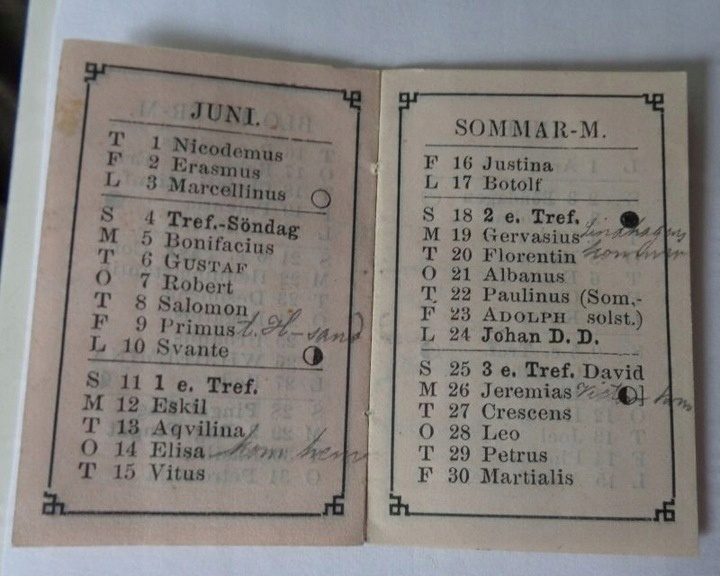 JUNI.
T 1 Nicodemus
F 2 Erasmus
L 3 Marcellinus
S 4 Tref.-Söndag
M 5 Bonifacius
T 6 GUSTAF
O 7 Robert
T 8 Salomon
F 9 Primus t. H-sand
L 10 Svante
S 11 1 e. Tref.
M 12 Eskil
T 13 Aqvilina
O 14 Elisa kom hem
T 15 Vitus
SOMMAR-M.
F 16 Justina
L 17 Botolf
S 18 2 e. Tref.
M 19 Gervasius
T 20 Florentin
O 21 Albanus
T 22 Paulinus (Som,-
F 23 ADOLPH solst.)
L 24 Johan D. D.
S 25 3 e. Tref. David
M 26 Jeremias
T 27 Crescens
O 28 Leo
T 29 Petrus
F 30 Martialis